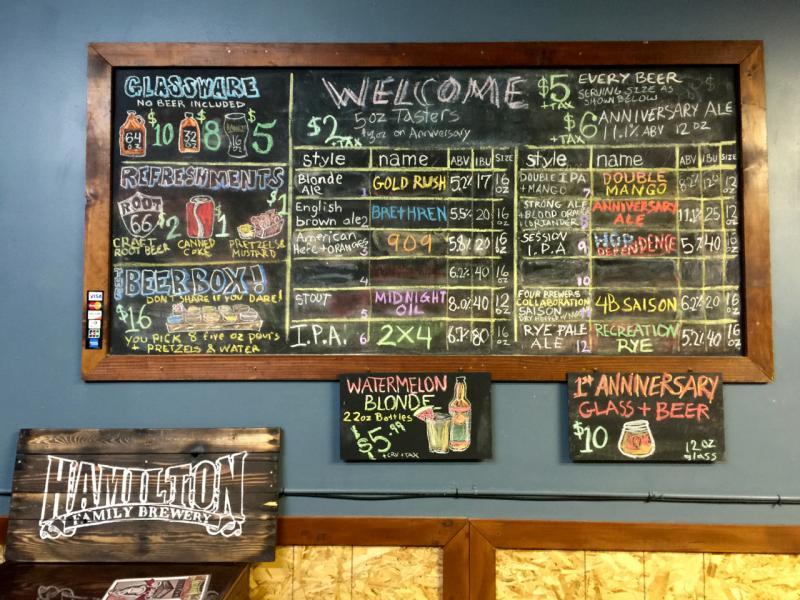 GLASSWARE
NO BEER INCLUDED
64 oz $10
32 oz $8
$5
REFRESHMENTS
ROOT 66 $2
$1
$1
CRAFT ROOT BEER
CANNED COKE
PRETZELS & MUSTARD
THE BEER BOX!
DON'T SHARE IF YOU DARE!
$16
YOU PICK 8 five oz pour's
+ PRETZELS & WATER
WELCOME
5oz Tasters
$2 +TAX
on Anniversary
$5 +TAX
EVERY BEER
SERVING SIZE AS
SHOWN BELOW
$6 +TAX
ANNIVERSARY ALE
11.1% ABV 12 OZ
style name ABV IBU SIZE
Blonde Ale 1 GOLD RUSH 5.2% 17 16 oz
English brown ale 2 BRETHREN 5.5% 20 16 oz
American Hefe + ORANGE 3 909 5.8% 20 16 oz
4 6.2% 40 16 oz
STOUT 5 MIDNIGHT OIL 8.0% 40 12 oz
I.P.A. 6 2X4 6.7% 80 16 oz
style name ABV IBU SIZE
DOUBLE IPA + MANGO 7 DOUBLE MANGO 8.2% 12 oz
STRONG ALE + BLOOD ORANGE CORIANDER 8 ANNIVERSARY ALE 11.1% 25 12 oz
SESSION I.P.A. 9 HOP DEPENDENCE 5.2% 40 16 oz
10
FOUR BREWERS COLLABORATION SAISON 11 4B SAISON 6.2% 20 16 oz
RYE PALE ALE 12 RECREATION RYE 5.2% 40 16 oz
VISA
WATERMELON
BLONDE
22oz Bottles
$5.99
+CRV+TAX
1st ANNIVERSARY
GLASS + BEER
$10
12 oz
glass
HAMILTON
FAMILY BREWERY